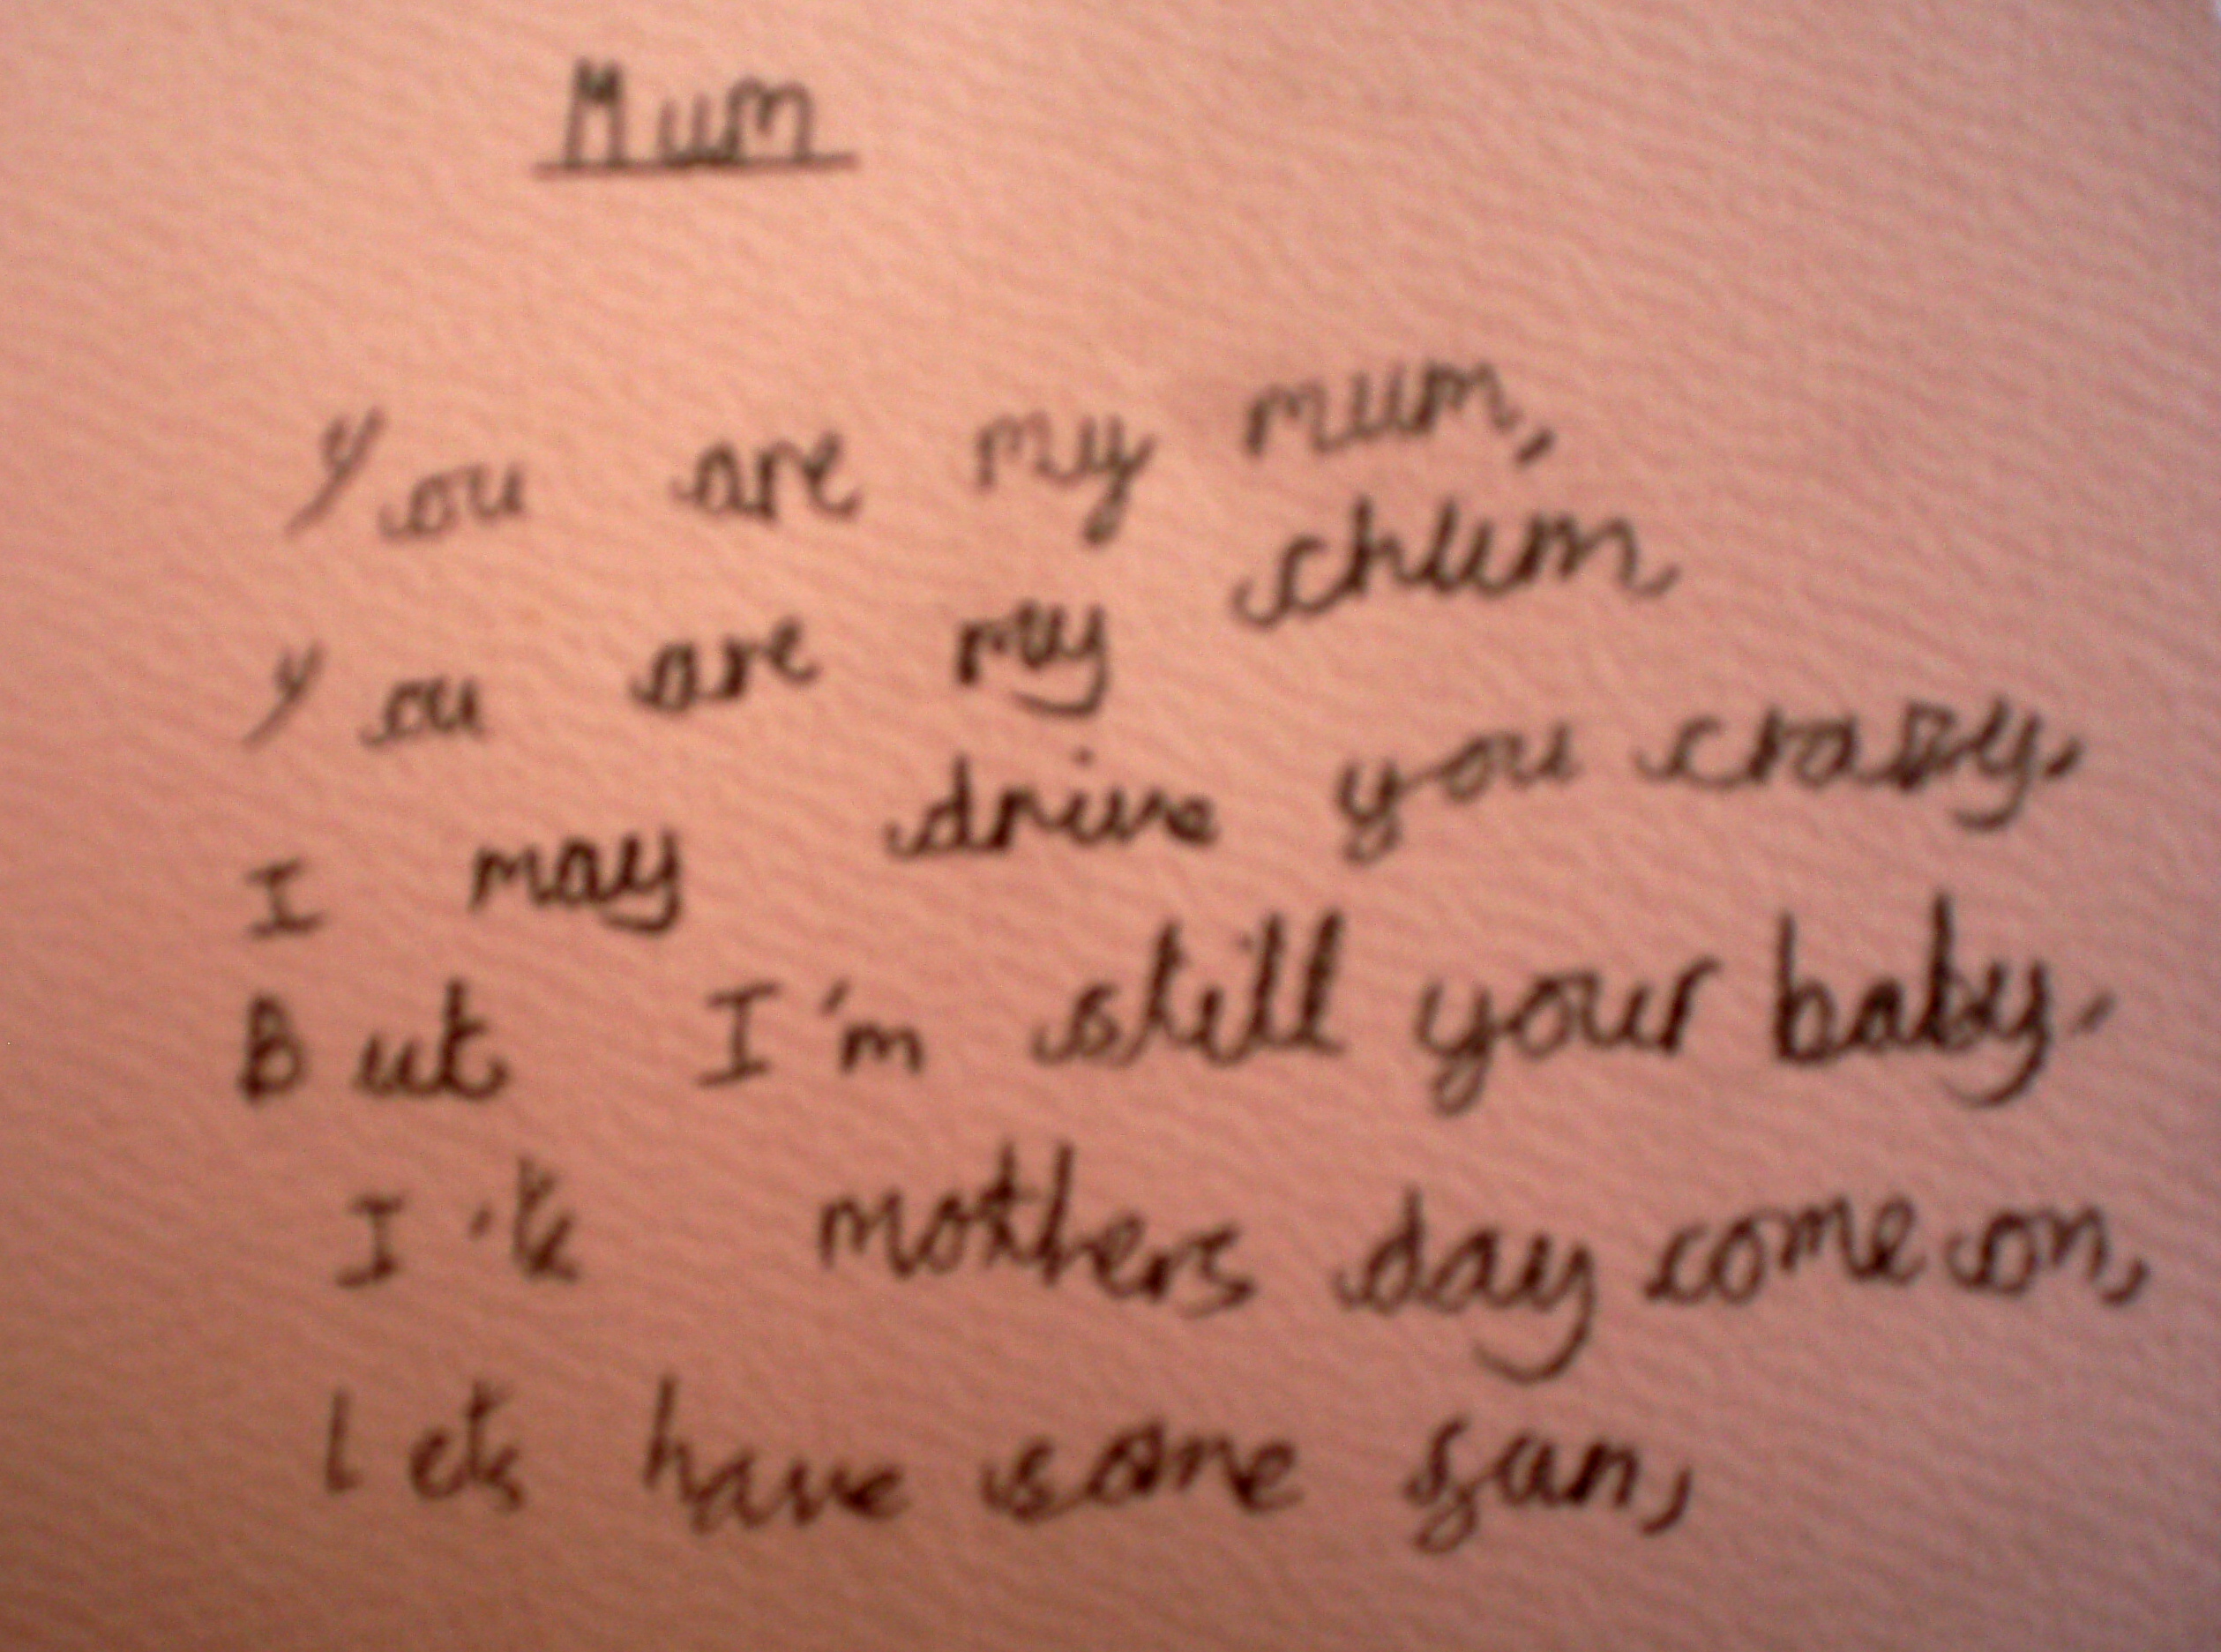 Mum
You are my mum,
You are my chum
I may drive you crazy,
But I'm still your baby.
It's mothers day come on,
Lets have some fun,